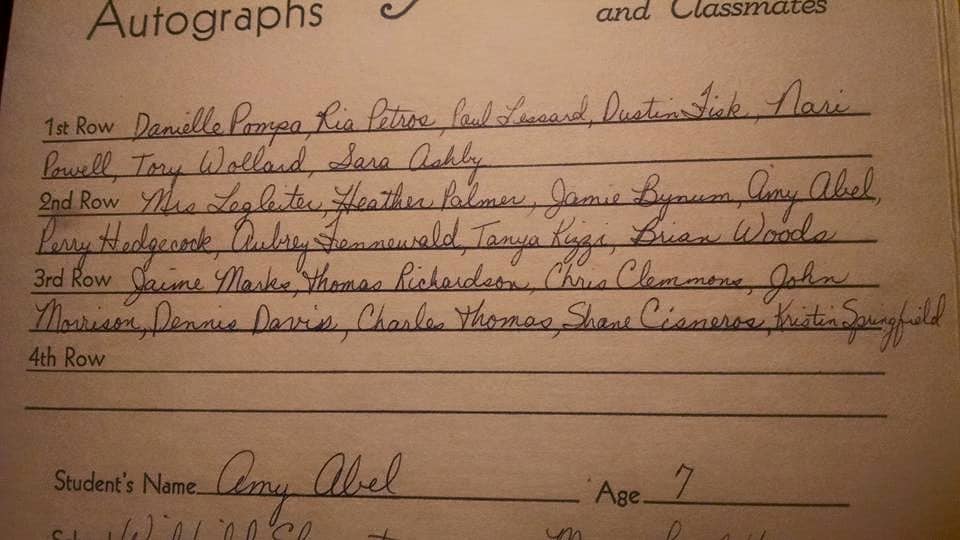 Autographs and Classmates
1st Row Danielle Pompa, Ria Petros, Paul Lessard, Dustin Fisk, Nari
Powell, Tory Wollard, Sara Ashby
2nd Row Mrs Legleiter, Heather Palmer, Jamie Bynum, Amy Abel,
Perry Hedgecock, Aubrey Fennewald, Tanya Kizzi, Brian Woods
3rd Row Jaime Marks, Thomas Richardson, Chris Clemmons, John
Morrison, Dennis Davis, Charles Thomas, Shane Cisneros, Kristin Springfield
4th Row
Student's Name Amy Abel Age 7